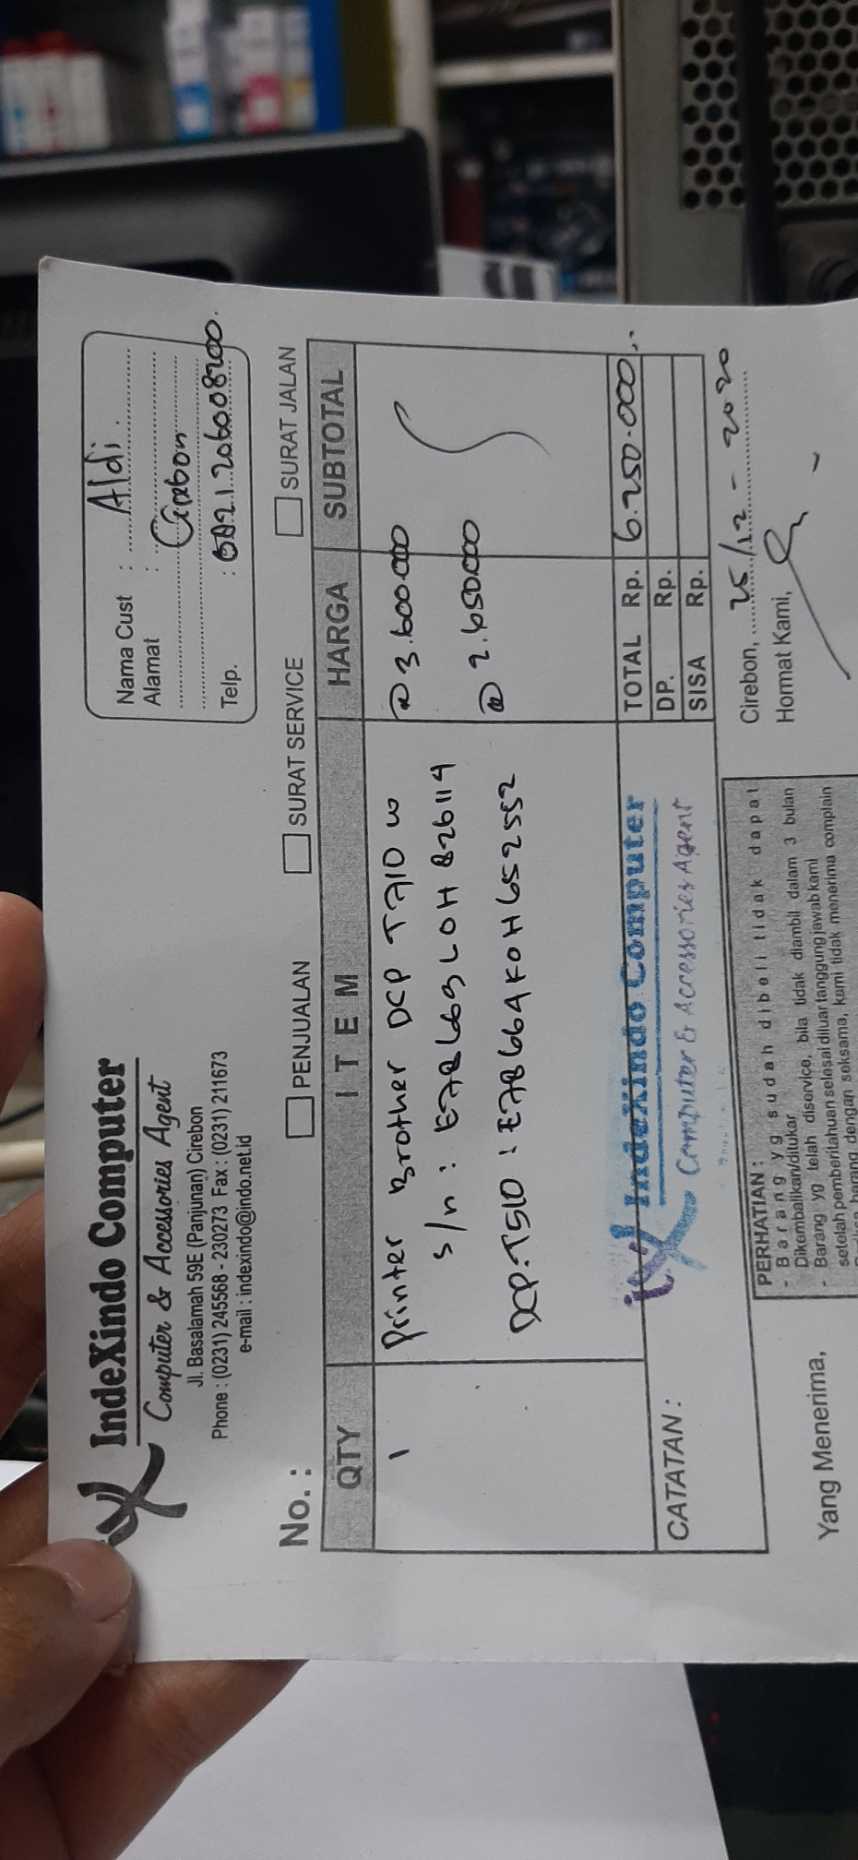 IndeXindo Computer
Computer & Accessories Agent
Jl. Basalamah 59E (Panjunan) Cirebon
Phone : (0231) 245568 - 230273 Fax : (0231) 211673
e-mail : indexindo@indo.net.id
Nama Cust : Aldi.
Alamat : Cirebon
Telp. :
No. :
PENJUALAN SURAT SERVICE SURAT JALAN
QTY ITEM HARGA SUBTOTAL
1 Printer Brother DCP T710 W @ 3.600.000
s/n :
DCP-T510 : @ 2.650.000
TOTAL Rp. 6.250.000,-
DP. Rp.
SISA Rp.
CATATAN :
IndeXindo Computer
Computer & Accessories Agent
Cirebon, 25/12 - 2020
Hormat Kami,
PERHATIAN :
- Barang yg sudah dibeli tidak dapat
Dikembalikan/ditukar
- Barang yg telah diservice, bila tidak diambil dalam 3 bulan
setelah pemberitahuan selesai diluar tanggung jawab kami
barang dengan seksama, kami tidak menerima complain
Yang Menerima,